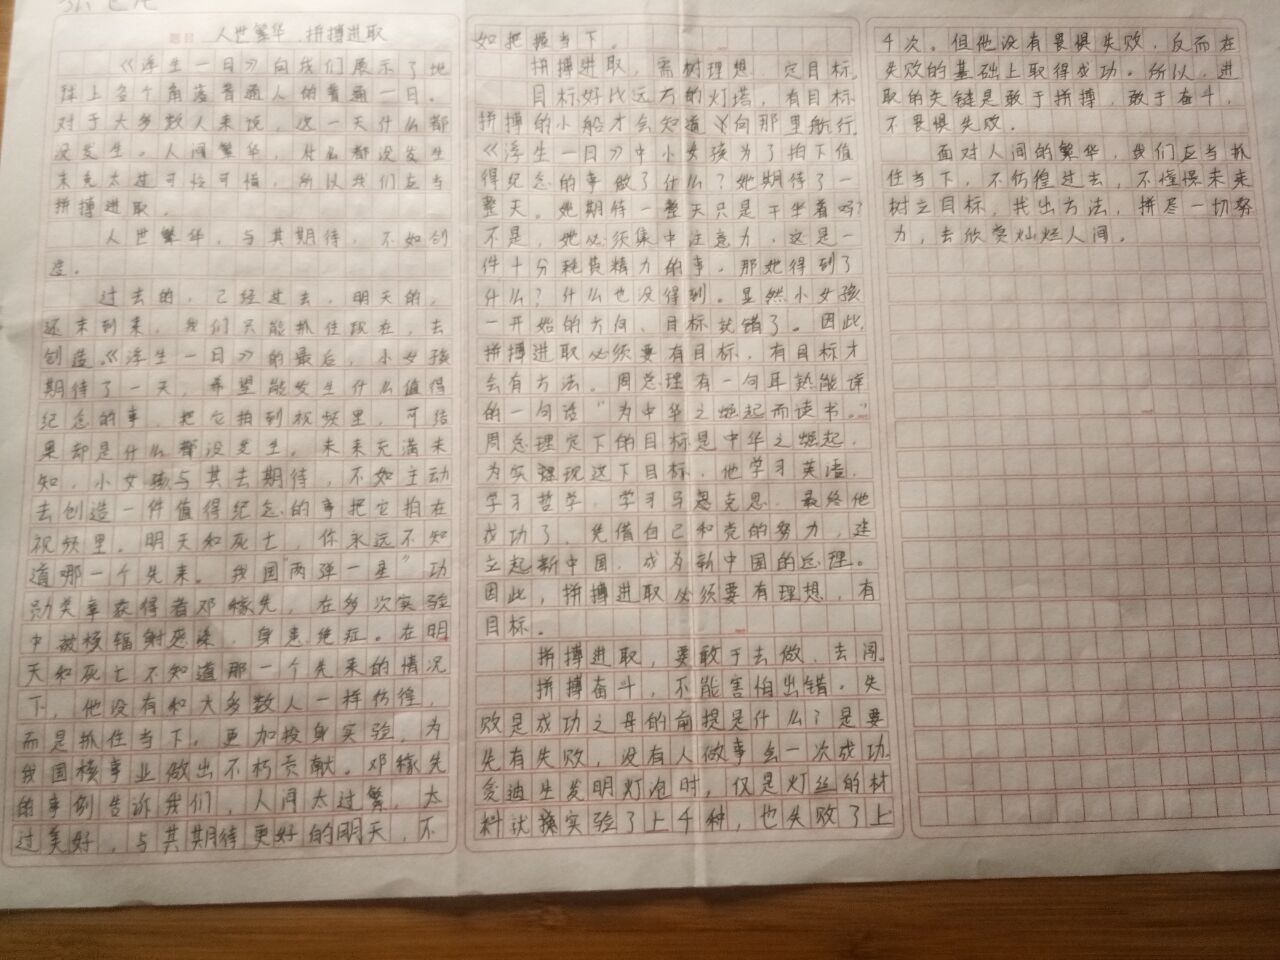 题目 人世繁华,拼搏进取
《浮生一日》向我们展示了地
球上各个角落普通人的普通一日。
对于大多数人来说,这一天什么都
没发生。人间繁华,什么都没发生
未免太过可怜可惜,所以我们应当
拼搏进取。
人世繁华,与其期待,不如创
造。
过去的,已经过去,明天的,
还未到来,我们只能抓住现在,去
创造。《浮生一日》的最后,小女孩
期待了一天,希望能发生什么值得
纪念的事,把它拍到视频里,可结
果却是什么都没发生。未来充满未
知,小女孩与其去期待,不如主动
去创造一件值得纪念的事把它拍在
视频里。明天和死亡,你永远不知
道哪一个先来。我国"两弹一星"功
勋奖章获得者邓稼先,在多次实验
中被核辐射感染,身患绝症。在明
天和死亡不知道那一个先来的情况
下,他没有和大多数人一样彷徨,
而是抓住当下,更加投身实验,为
我国核事业做出不朽贡献。邓稼先
的事例告诉我们,人间太过繁,太
过美好,与其期待更好的明天,不
如把握当下。
拼搏进取,需树理想,定目标。
目标好比远方的灯塔,有目标
拼搏的小船才会知道向那里航行。
《浮生一日》中小女孩为了拍下值
得纪念的事做了什么?她期待了一
整天。她期待一整天只是干坐着吗?
不是,她必须集中注意力,这是一
件十分耗费精力的事。那她得到了
什么?什么也没得到。显然小女孩
一开始的方向、目标就错了。因此,
拼搏进取必须要有目标,有目标才
会有方法。周总理有一句耳熟能详
的一句话"为中华之崛起而读书。"
周总理定下的目标是中华之崛起,
为实现这下目标,他学习英语,
学习哲学,学习马恩克思,最终他
成功了,凭借自己和党的努力,建
立起新中国,成为新中国的总理。
因此,拼搏进取必须要有理想,有
目标。
拼搏进取,要敢于去做、去闯。
拼搏奋斗,不能害怕出错。失
败是成功之母的前提是什么?是要
先有失败,没有人做事会一次成功。
爱迪生发明灯泡时,仅是灯丝的材
料就换实验了上千种,也失败了上
千次。但他没有畏惧失败,反而在
失败的基础上取得成功。所以,进
取的关键是敢于拼搏,敢于奋斗,
不畏惧失败。
面对人间的繁华,我们应当抓
住当下,不彷徨过去,不憧憬未来
树立目标,找出方法,拼尽一切努
力,去欣赏灿烂人间。